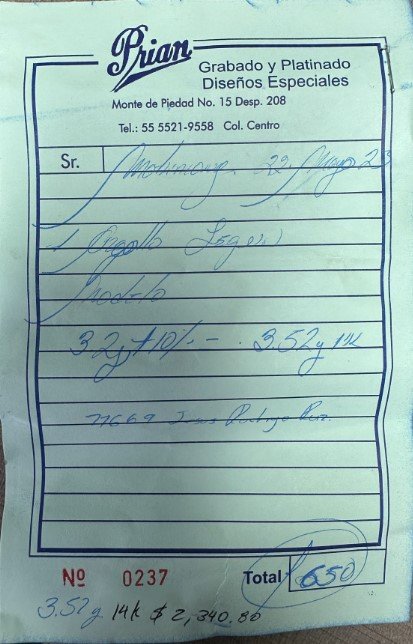 Prian
Grabado y Platinado
Diseños Especiales
Monte de Piedad No. 15 Desp. 208
Tel.: 55 5521-9558 Col. Centro
Sr. 22 Mayo 23
Modelo
3.2g + 10% - 3.52g 14K
77669 Jesus
Nº 0237 Total 650
3.52g 14K $ 2,340.80